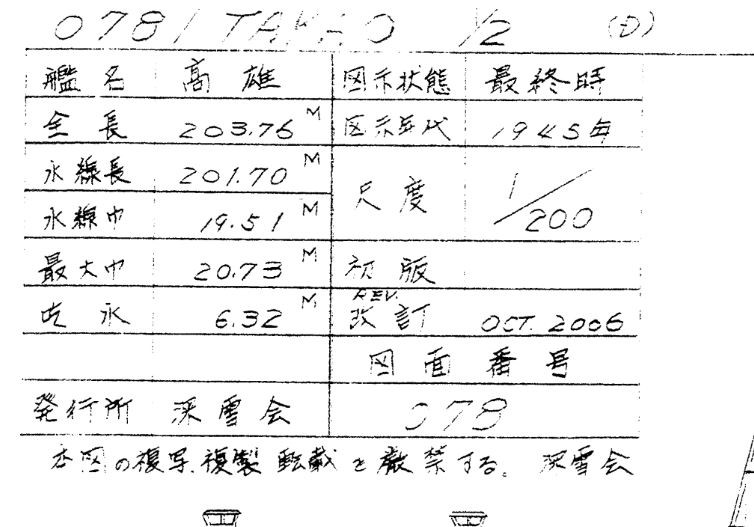 0781 TAKAO 1/2 (D)
艦名 高雄 図示状態 最終時
全長 203.76M 図示年代 1945年
水線長 201.70M 尺度 1/200
水線巾 19.51M
最大巾 20.73M 初版
吃水 6.32M REV. 改訂 OCT. 2006
図面番号
発行所 深雪会 078
本図の複写、複製転載を厳禁する。 深雪会